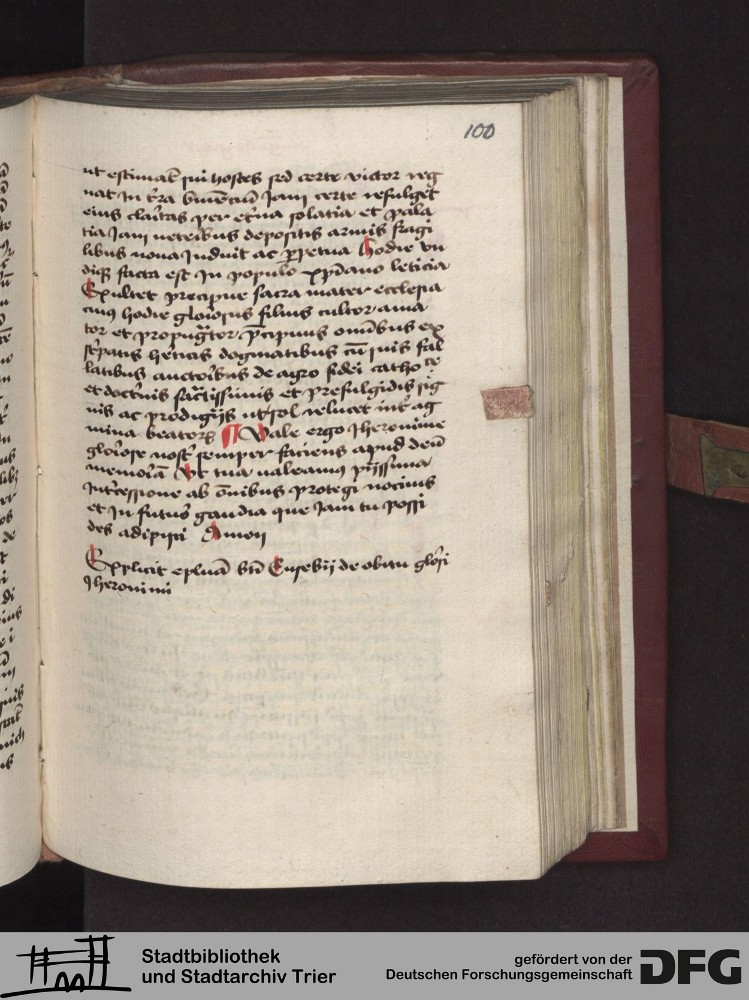 100
ut estimat sui hostes sed certe victor reg
nat in t̄ra viuēciū Jam certe refulget
eius clāitas per et̄na solatia et pala
tia Jam veteribus depositis armis fragi
libus noua Induit ac ꝑpetua Hodie vn
diqꝫ facta est In populo xp̄iano leticia
Exultet precipue sacra mater ecclesia
cuiꝰ hodie gloriosus filius cultor ama
tor et propugn̄ator p̄cipuus om̄ibus ex
st̄patis h̄eticis dogmatibus cū suis fal
latibus auctoribus de agro fidei catho ce
et doct̄inis sāctissimis et prefulgidis sig
nis ac prodigijs ut sol relucet int̄ ag
mina beatorꝫ Vale ergo Jheronime
gloriose nost̄ semper faciens apud deū
memoriā Vt tua valeamus pijssima
Int̄cessione ab ōnibus protegi nociuis
et In futuro gaudia que Jam tu possi
des adipisci Amen
Explicit epl̄a btī Eusebij de obitu glōsi
Jheronimi
Stadtbibliothek
und Stadtarchiv Trier
gefördert von der
Deutschen Forschungsgemeinschaft
DFG